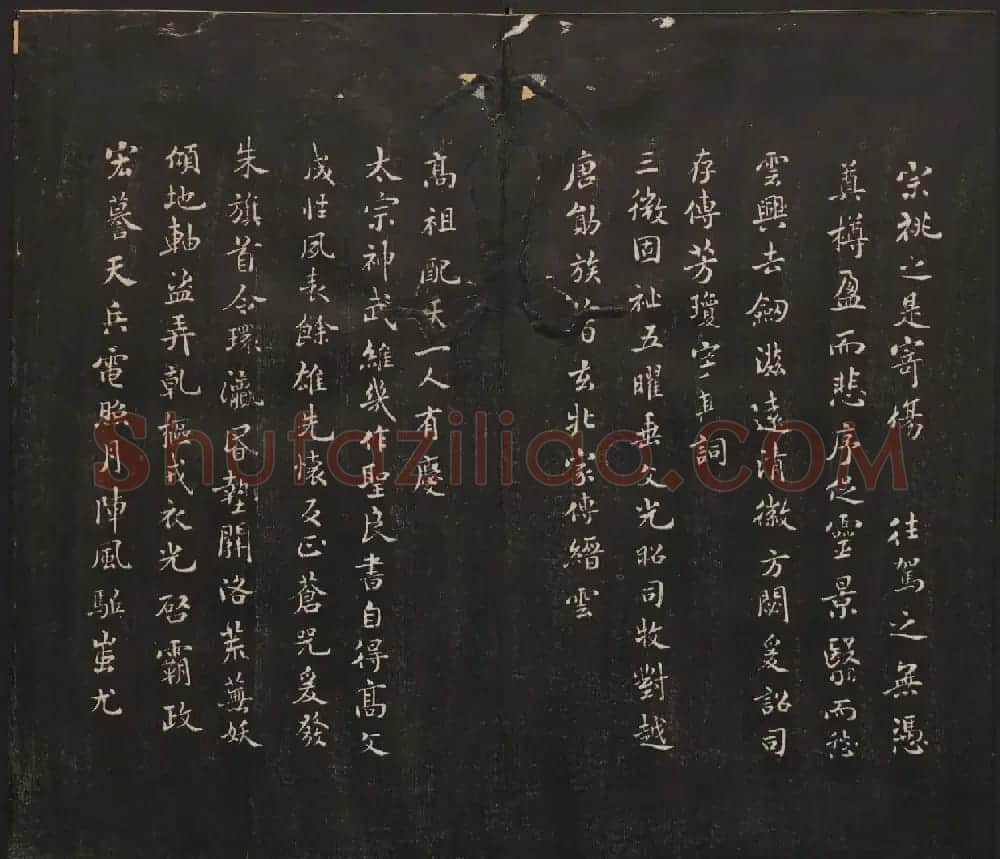 宗祧之是寄 往駕之無憑
奠樽盈而悲序促靈景翳而愁
雲興去劔滋遠清徽方閟爰詔司
存傳芳瓊 詞
三微固祉五曜垂文光昭司牧對越
唐勛族 玄牝家傳縉雲
高祖配天一人有慶
太宗神武維幾作聖良書自得高文
成性夙表餘雄先懷反正蒼兕爰發
朱旗首令環瀛昬墊關洛荒蕪妖
傾地軸盗弄乾樞戎衣光啓霸政
宏謩天兵電照月陣風驅蚩尤
Shufaziliao.COM